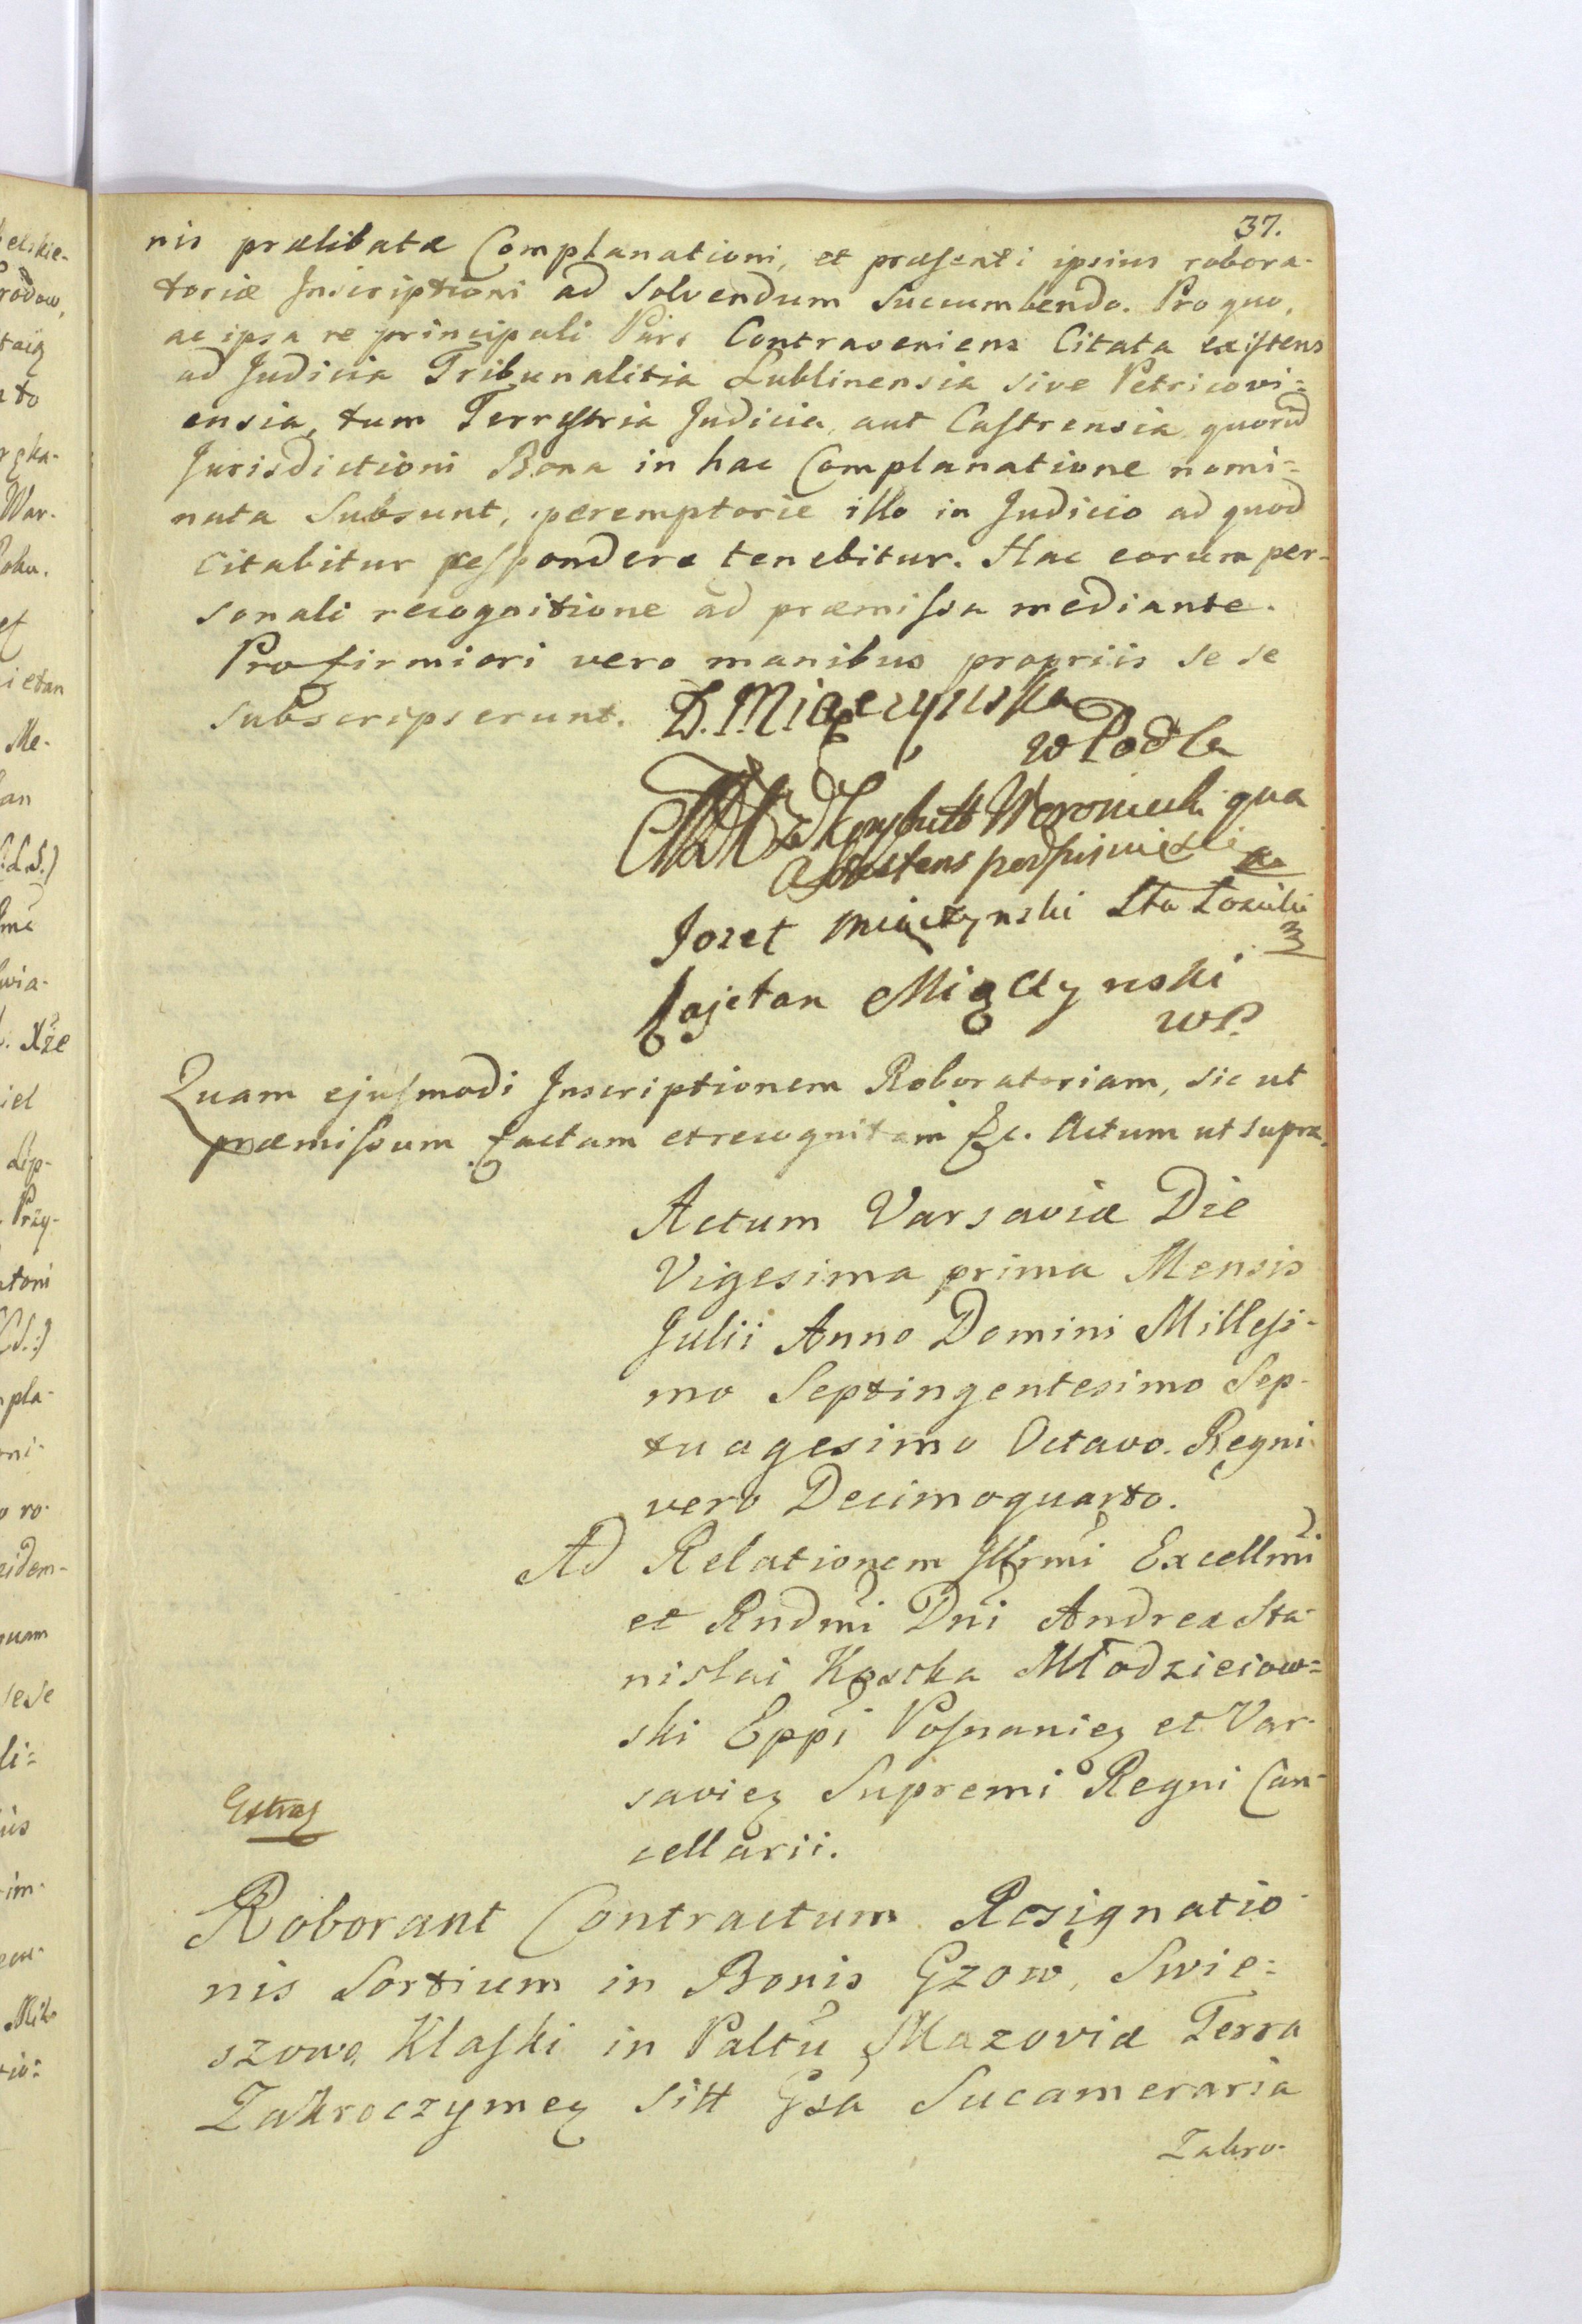 37.
nis prælibatæ Complanationi, et præsenti ipsius robora-
toriæ Inscriptioni ad Solvendum Succumbendo. Pro quo,
ac ipsa re principali Pars Contraveniens Citata existens
ad Judicia Tribunalitia Lublinensia sive Petricovi=
ensia, tum Terrestria Judicia, aut Castrensia quorū
Jurisdictioni Bona in hac Complanatione nomi=
nata Subsunt, peremptorie illo in Judicio ad quod
Citabitur respondere tenebitur. Hac eorum per-
sonali recognitione ad præmissa mediante.
Pro firmiori vero manibus propriis se se
subscripserunt. D. Miączynska
w Podla
Korybutt Woroniecki qua
assistens podpisuię się
Jozef Miączynski Sta Łosicki
Kajetan Miączynski
WP.
Quam ejusmodi Inscriptionem Roboratoriam, sic ut
præmissum factam et recognitam &c. Actum ut supra.
Actum Varsaviæ Die
Vigesima prima Mensis
Julii Anno Domini Millesi-
mo Septingentesimo Sep-
tuagesimo Octavo. Regni
vero Decimoquarto.
Ad Relationem Illrmi Excellmi
et Rndmi Dni Andreæ Sta-
nislai Kostka Młodzieiow=
ski Eppi Posnanieɳ et Var-
savieɳ Supremi Regni Can-
cellarii.
Extraɳ
Roborant Contractum Resignatio-
nis Sortium in Bonis Gzowo, Swie=
szowo, Klaski in Paltū Mazoviæ Terra
Zakroczymeɳ sitt Gsa Sucameraria
Zakro-